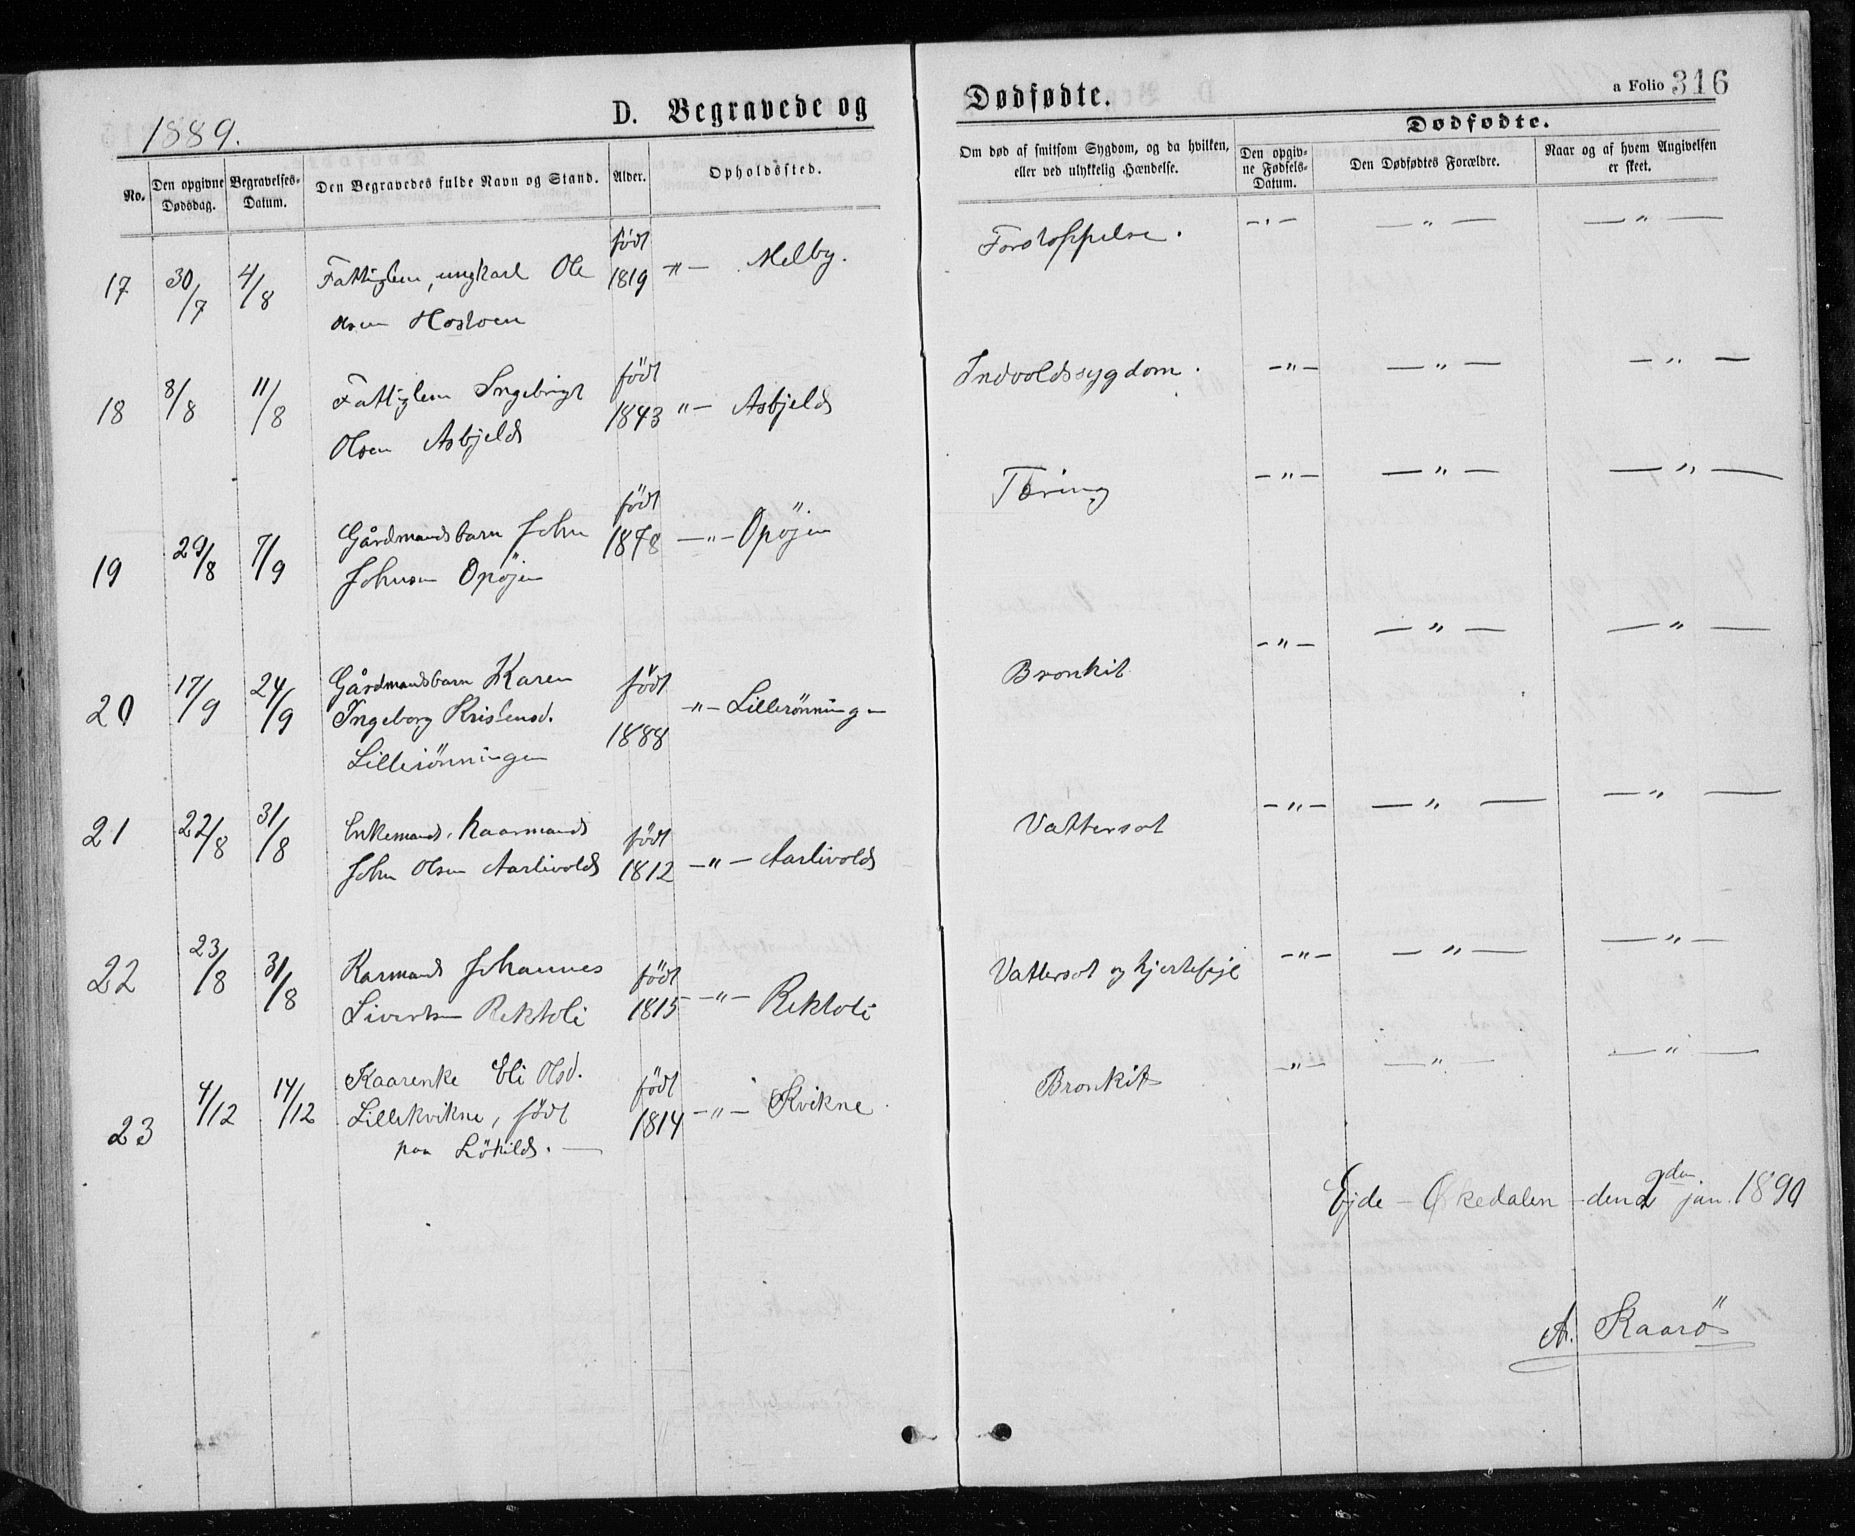 1889.
D. Begravede og Dødfødte.
a Folio 316
No.
Den opgivne Dødsdag.
Begravelses-Datum.
Den Begravedes fulde Navn og Stand.
Alder.
Opholdssted.
Om død af smitsom Sygdom, og da hvilken, eller ved ulykkelig Hændelse.
Dødfødte.
Den opgivne Fødsels-Datum.
Den Dødfødtes Forældre.
Naar og af hvem Angivelsen er skeet.
17 30/7 4/8 Fattiglem, ungkarl Ole født 1819 -"- Melby. Forstoppelse. -"- -"- -"-
Olsen
18 8/8 11/8 Fattiglem Ingebrigt født 1843 "- Asbjeld Indvoldssygdom. -"- -"- -"-
Olsen Asbjeld
19 29/8 7/9 Gårdmandsbarn John født 1878 -"- Opöjen Tæring -"- -"- -"-
Johnsen Opöjen
20 17/9 24/9 Gårdmandsbarn Karen født 1888 -"- Lillerönningen Bronkit -"- -"- -"-
Ingeborg Kristensd.
Lillerönningen
21 22/8 31/8 Enkemand, Kaarmand født 1812 -"- Aarlivold Vattersot -"- -"- -"-
John Olsen Aarlivold
22 23/8 31/8 Karmand Johannes født 1815 -"- Rektoli Vattersot og hjertefejl -"- -"- -"-
Sivertsen Rektoli
23 4/12 14/12 Kaarenke Eli Olsd. født 1814 -"- Kvikne. Bronkit -"- -"- -"-
Lillekvikne, født
paa Lökild. —
Ejde - Økedalen - den 2den jan. 1890
A. Kaarö